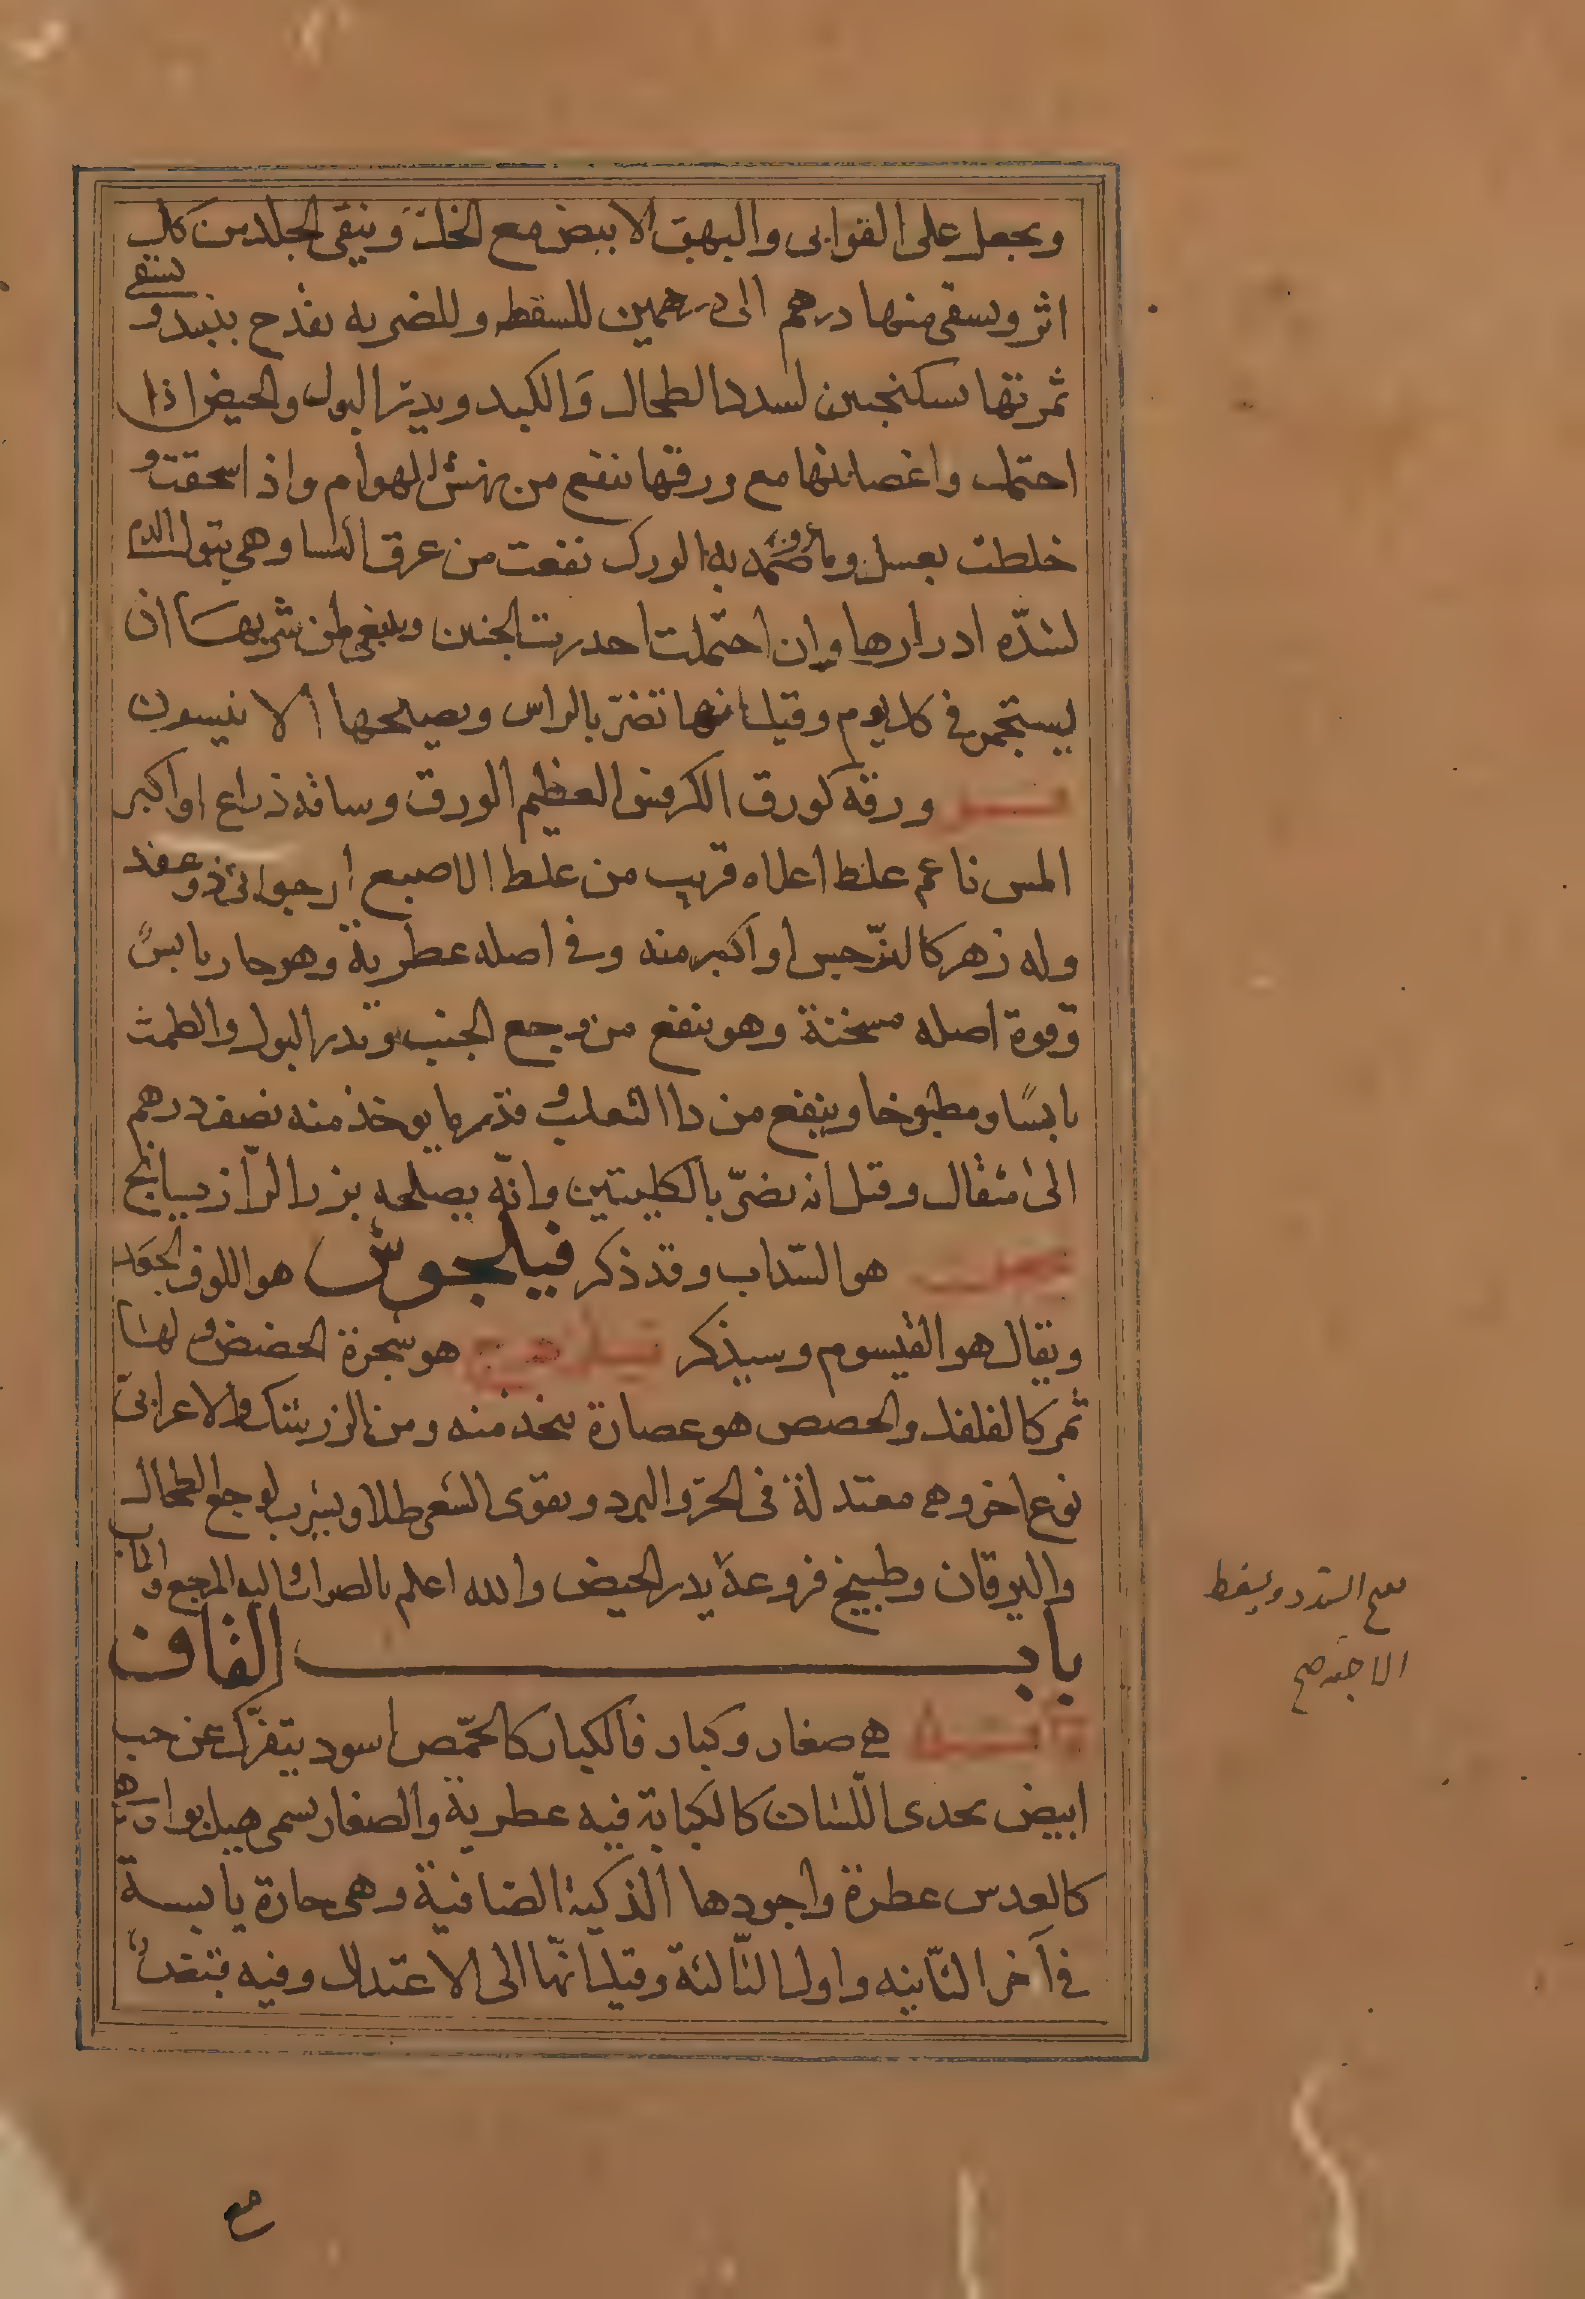 ويجعل على القوابى والبهق الابيض مع الخل وينقى الجلد من كل
اثر ويسقى منها درهم الى درهمين للسقطه وللضربه بقدح بنبيد و يسقى
ثمرتها بسكنجبين لسدد الطحال والكبد ويدر البول والحيض اذا
احتمل واغصانها مع ورقها ينفع من نهش الهوام واذا سحقت و
خلطت بعسل وضمد به الورك نفعت من عرق النسا وهى بتول الدم
لشدّه ادرارها وان احتملت احدرت الجنين وينبغى لمن شربها ان
يستجم فى كل يوم وقيل انها تضرّ بالراس ويصلحها الانيسون
فـو ورقه كورق الكرفس العظيم الورق وساقه ذراع او اكبر
املس ناعم غلظ اعلاه قريب من غلظ الاصبع ارجوانى ذو عقد
وله زهر كالنرجس او اكبر منه وفى اصله عطرية وهو حار يابسٌ
وقوة اصله مسخنة وهو ينفع من وجع الجنب ويدر البول والطمث
يابسًا ومطبوخا وينفع من داا الثعلب و قدر ما يوخذ منه نصف درهم
الى مثقال وقيل انه يضرّ بالكليتين وانّه يصلحه بزر الرّازيانج
فيجن هو السّداب وقد ذكر فيلجوش هو اللوف الجعد
ويقال هو القيسوم وسيذكر فيلزهرج هو شجرة الحضض و لها
ثمر كالفلفل والحضض هو عصارة يتخذ منه ومن الزرشك والاعرابىّ
نوع اخر وهى معتدلة فى الحرّ والبرد ويقوى الشعر طلا ويشرب لوجع الطحال
واليرقان وطبيخ فروعه يدر الحيض والله اعلم بالصواب و اليه المرجع و الماب
باب القاف
قاقلة هى صغار وكبار فالكبار كالحمّص اسود يتفرّك عن حب
ابيض يحدى اللّسان كالكبابة فيه عطرية والصغار يسمى هيل بوا وهى
كالعدس عطرة واجودها الذكية الصافية وهى حارة يابسة
فى آخر الثّانيه واول الثّالثة وقيل انّها الى الاعتدال وفيه قبض
يفتح السّدد ويسقط
الاجنّه صح